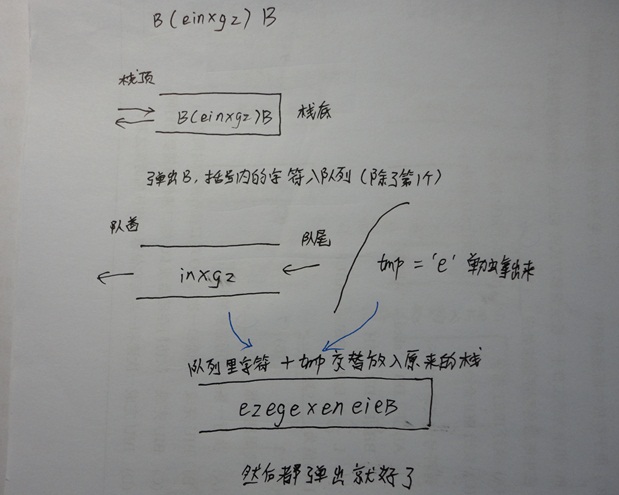 B(einxgz)B
栈顶
B(einxgz)B 栈底
弹出B,括号内的字符入队列(除了第1个)
队首 队尾
inxgz tmp = 'e' 单独拿出来
队列里字符+tmp交替放入原来的栈
ezegexeneieB
然后都弹出就好了